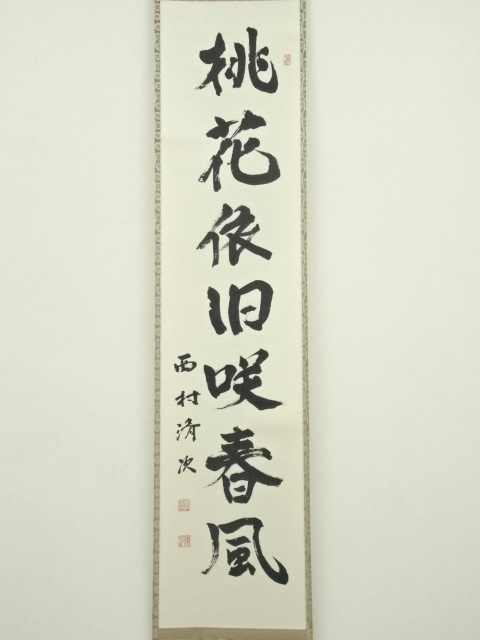 桃花依旧咲春風
西村清次